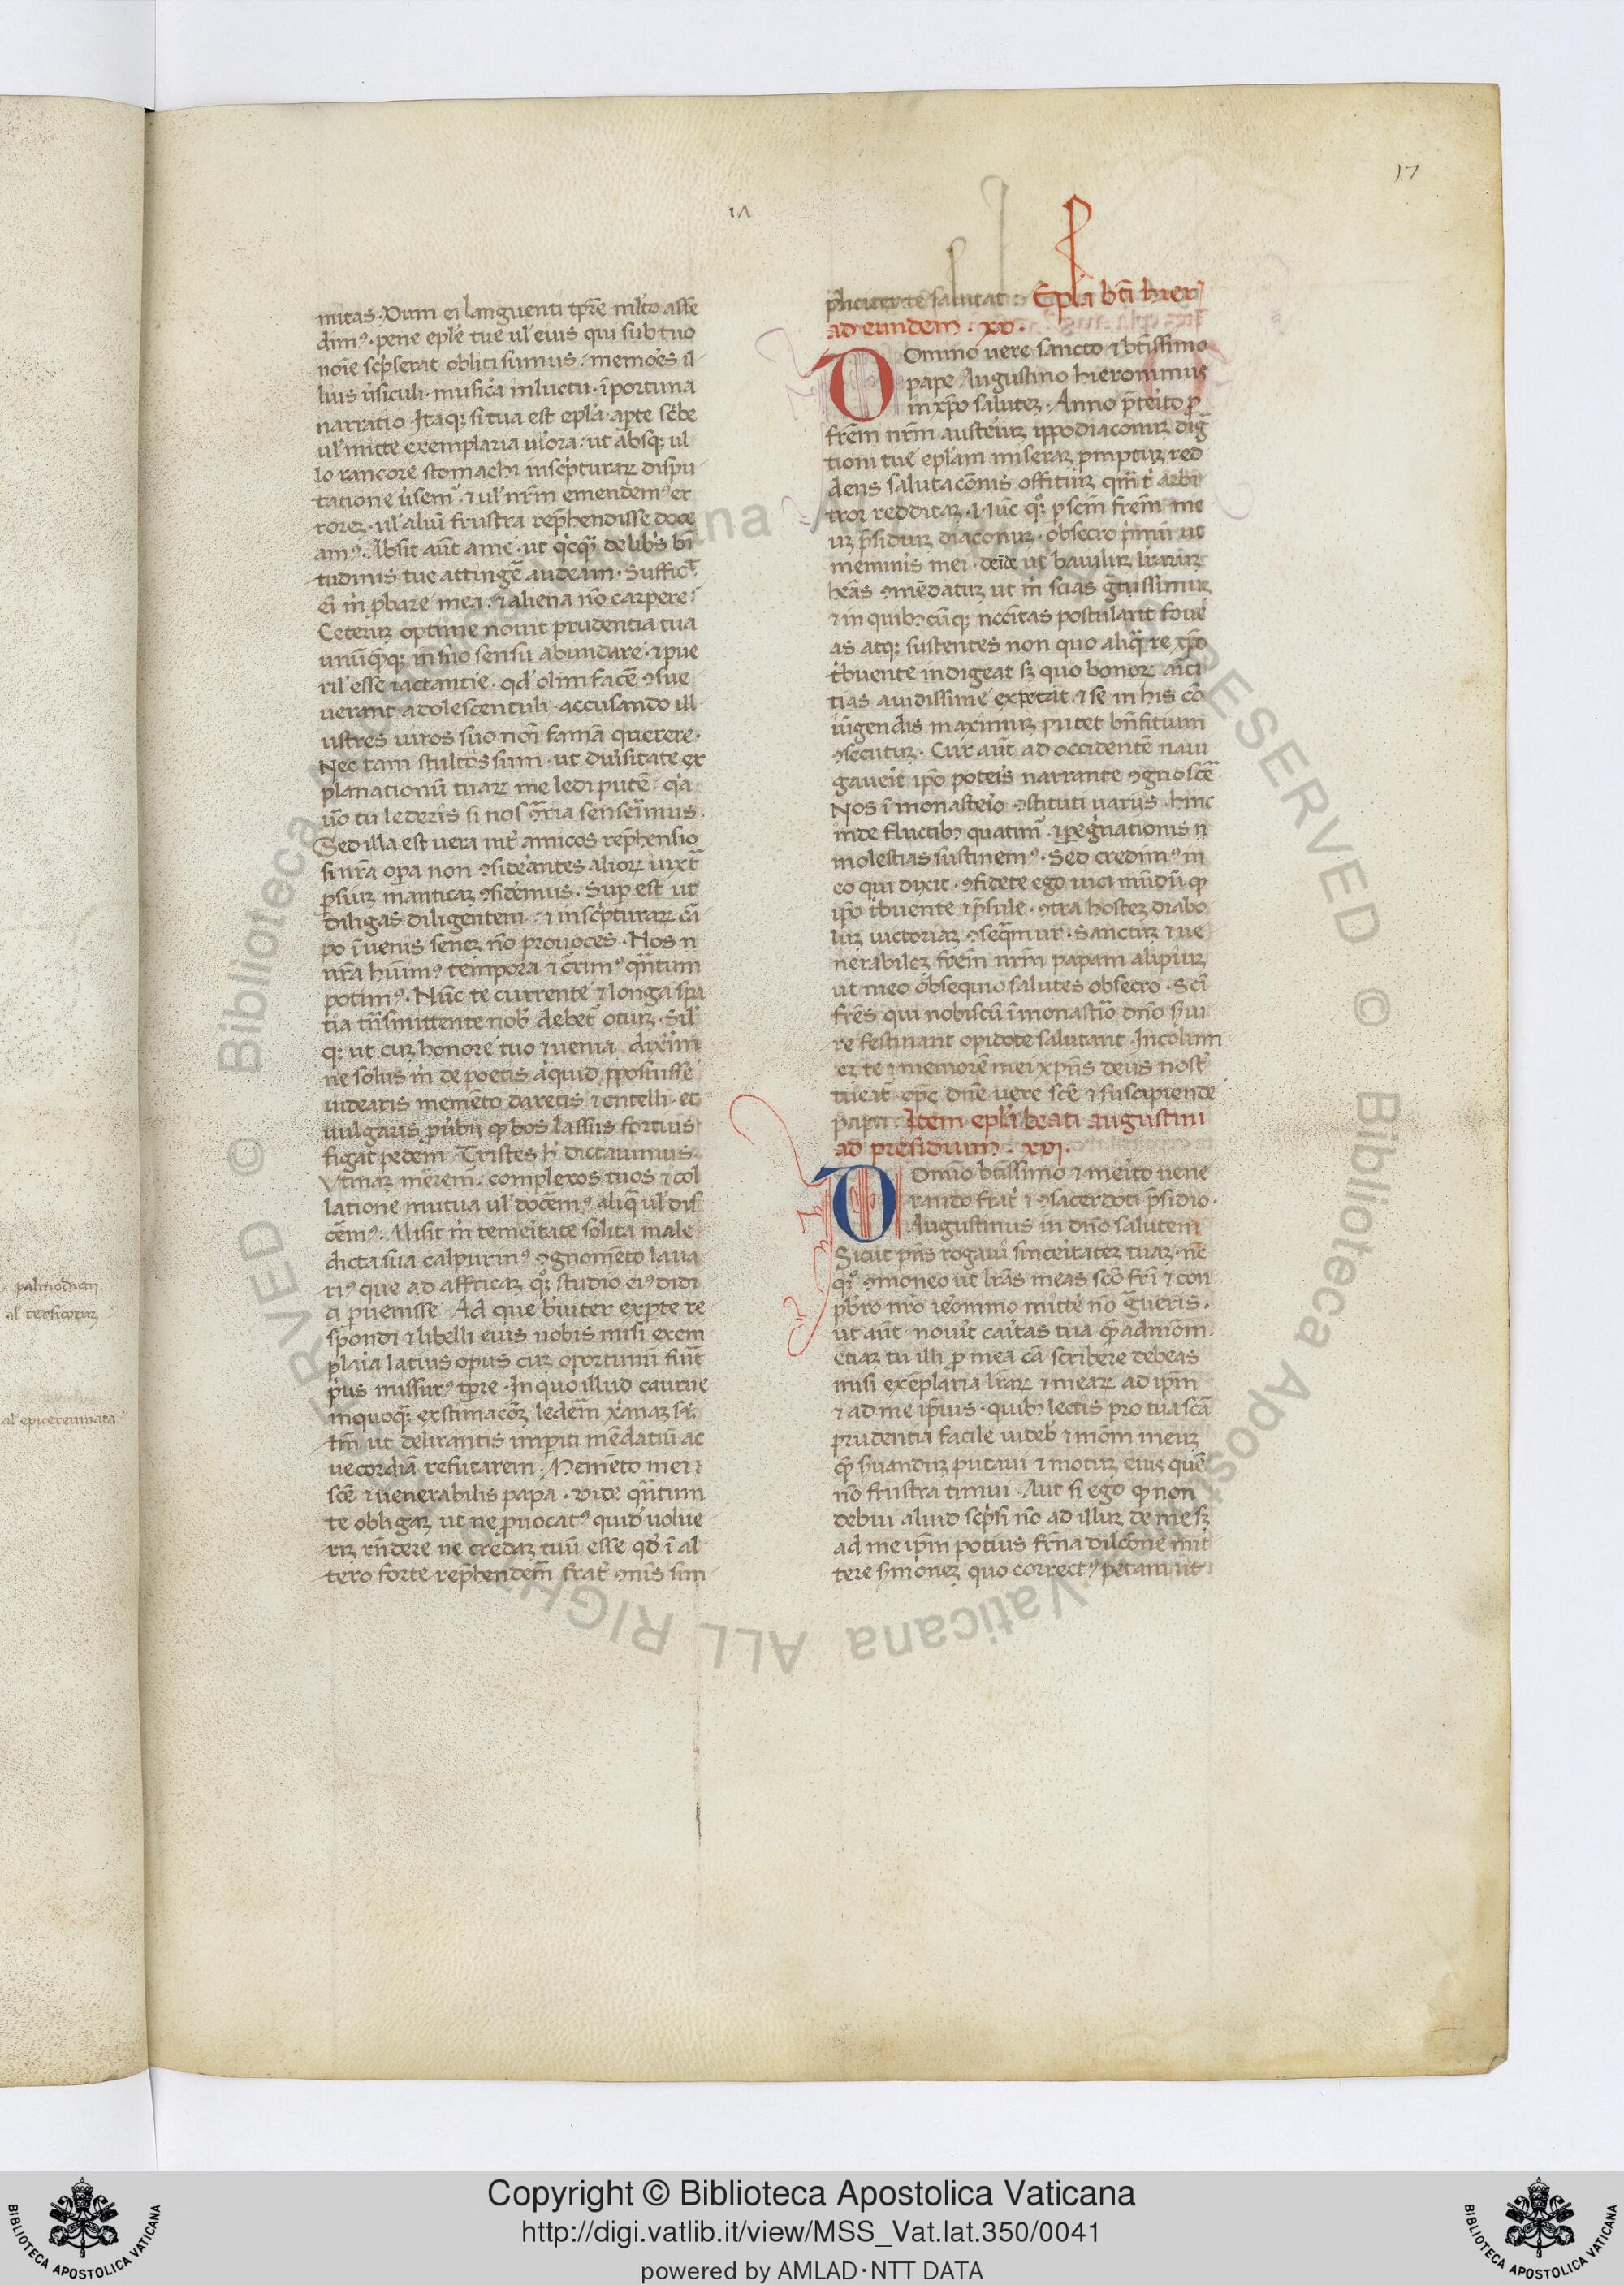 palinodiam
al' tersicorum
al epicereumata
17
mitas. Dum ei languenti tp̄re ml̄to asse
dim⁹. pene eplē tue ul' eius qui sub tuo
noīe scp̄serat obliti sumus. memores il
lius u̇siculi. musica in luctu. īportuna
narratio. Itaq; si tua est epl̄a. apte sc̄be
ul' mitte exemplaria uiora. ut absq; ul
lo rancore stomachi in scp̄turaꝝ dispu
tatione u̇sem̄. ⁊ ul' nr̄m emendem⁹ er
rorez. ul' aliū frustra rep̄hendisse doce
am⁹. Absit aūt a me. ut q̇cq̄ de libs bī
tudinis tue attingē audeam. Suffic̄
ei m̄ ꝓbare mea. ⁊ aliena nō carpere.
Ceterum optime nouit prudentia tua
unūq̄q; in suo sensu abundare. ⁊ pue
ril' esse iactantie. qd' olim facē ꝯsue
uerant adolescentuli. accusando ill
ustres uiros suo noī famā querere.
Nec tam stultus sum. ut diu̇sitate ex
planationū tuaꝝ me ledi putē. q̇a
n̄ tu lederis si nos ꝯ̄ria senserimus.
Sed illa est uera int̄ amicos rep̄hensio
si nr̄a opa non ꝯsiderantes alioꝝ iuxt̄
ꝑsium manticam ꝯsidemus. Sup est ut
diligas diligentem. ⁊ in scp̄turaꝝ cā
po iuuenis senez nō prouoces. Nos n
nr̄a huim⁹ tempora ⁊ c̄rim⁹ q̄ntum
potim⁹. Nūc te currente ⁊ longa spa
tia tn̄smittente nob' debet' otium. Sil'
q; ut cum honore tuo ⁊ uenia dixerim
ne solus m̄ de poetis aliquid ꝓposuisse
uidearis memēto daretis ⁊ entelli. et
uulgaris ꝓu̇bii q̄ bos lassus fortius
figat pedem. Tristes h̄ dictauimus.
Utinam mērem̄. complexos tuos ⁊ col
latione mutua ul' docem⁹ aliq̄ ul' dis
cēm⁹. Misit m̄ temeritate solita male
dicta sua calpurin⁹ ꝯgnomēto laua
ri⁹ que ad affricam q̊q; studio ei⁹ didi
a ꝑuenisse. Ad que bruiter ex ꝑte re
spondi ⁊ libelli eius uobis misi exem
plaria latius opus cum oportunū fuit
p̄us missur⁹ tp̄re. In quo illud cautue
in quoq̄ exstimacōz ledem̄ xānam sꝫ.
tm̄ ut delirantis imperiti mēdatiū ac
uecordiā refutarem. Memēto mei.
scē ⁊ uenerabilis papa. Uide q̄ntum
te obligam ut ne ꝓuocat⁹ quid uolue
rim rn̄dere ne credam tuū esse qd' ī al
tero forte rep̄hendem̄ frat' ꝯnis sim
pliciter te salutat. Epl̄a bt̄i hier'
ad eundem. xv.
Domino uere sancto ⁊ bt̄issimo
pape Augustino hieronimus
in xp̄o salutez. Anno p̄terito ꝑ
frēm nr̄m austeriuz ippodiaconuz dig
tioni tue epl̄am miseram ꝓmptum red
dens salutacōnis offitium qm̄ t̄ arbi
tror redditam. ⁊ nūc q̊q; ꝑ scm̄ frēm me
um p̄sidium diaconum. obsecro primū ut
memineris mei. deide ut baiulum lr̄arum
heās ꝯmēdatum ut m̄ scias g̅tissimum
⁊ in quibꝫcūq; nccītas postularit foue
as atq; sustentes non quo aliq̄ re xp̄o
t̄buente indigeat sꝫ quo bonoꝝ aīci
tias auidissime expetat. ⁊ se in his cō
iūgendis maximum putet bn̄fitium
ꝯsecutum. Cur aūt ad occidentē naui
gaueīt ip̄o poteis narrante ꝯgnoscē.
Nos ī monasterio ꝯstituti uarijs. hinc
inde fluctibꝫ quatim̄. ⁊ pegrinationis n
molestias sustinem⁹. Sed credim⁹ in
eo qui dixit. ꝯfidete ego uici mūdū q̄
ip̄o t̄buente ⁊ p̄sule. ꝯtra hostem diabo
lum uictoriam ꝯseq̄mur. Sanctum ⁊ ue
nerabilem frēm nr̄m papam alipium
ut meo obsequio salutes obsecro. Scī
frēs qui nobiscū ī monasterio dn̄o s̄ui
re festinant opido te salutant. Incolum
em te ⁊ memorē mei xp̄us deus nost'
tueat' op̄c dn̄e uere scē ⁊ suscipiende
papa. Item epl̄a beati augustini
ad presidium. xvi.
Domīo bt̄issimo ⁊ merito uene
rando frat' ⁊ ꝯsacerdoti p̄sidio.
Augustinus in dn̄o salutem
Sicut p̄ns rogaui sinceritatem tuam. nc̄
q̊q; ꝯmoneo ut lr̄as meas scō frī ⁊ con
pbr̄o nr̄o ieronimo mitte nō gueris.
ut aūt nou̇it caritas tua q̄admōm.
etiam tu illi ꝓ mea cā scribere debeas
misi exēplaria lr̄aꝝ ⁊ mearꝝ ad ip̄m
⁊ ad me ip̄ius. quibꝫ lectis pro tua scā
prudentia facile uideb' ⁊ mōm meum
q̄ s̄uandum putaui ⁊ motum eius quē
nō frustra timui. Aut si ego q̄ non
debui aliud scp̄si nō ad illum de me sꝫ
ad me ip̄m potius fr̄na dilc̄one mit
tere s̄monez quo correct⁹ petam ut
Copyright © Biblioteca Apostolica Vaticana
http://digi.vatlib.it/view/MSS_Vat.lat.350/0041
powered by AMLAD·NTT DATA